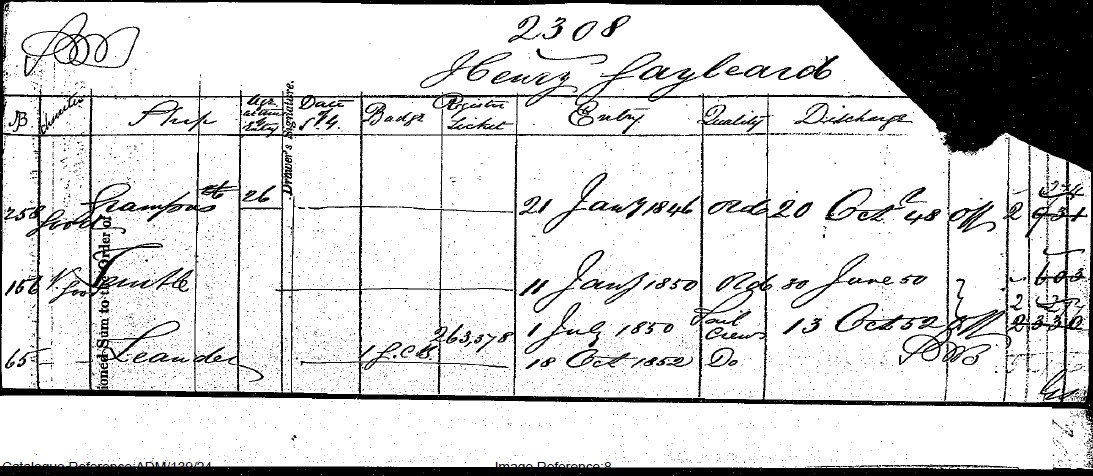 2308
Henry Gayleard
SB Character Ship Age at time of Entry Date of S.G. Badge Register Ticket Entry Quality Discharge
Drawer's Signature.
258 Good Grampus 26 21 Jany 1846 Ord 20 Octr 48 Off 2
156 V. Good 11 Jany 1850 Ord 30 June 50
1 July 1850 Sail Crew 13 Oct 52 Off
65 Leander 1 G.C.B. 263,578 18 Oct 1852 Do
ioned Sum to the Order of
Catalogue Reference:ADM/139/24 Image Reference:8